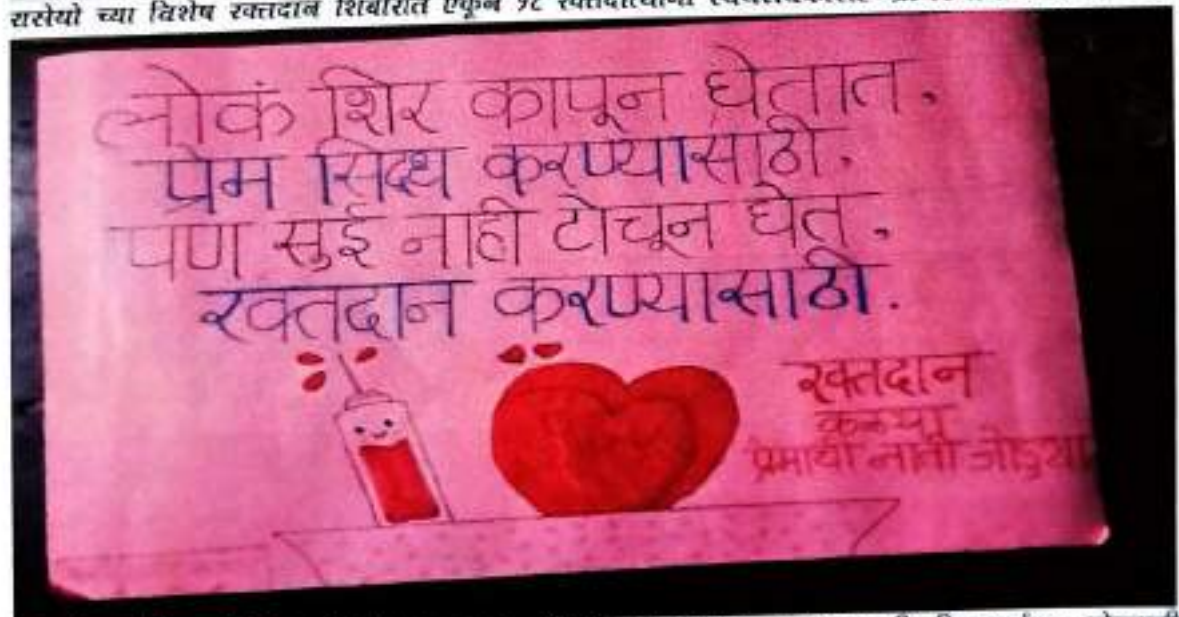 रासेयो च्या विशेष रक्तदान शिबीरात एकून १८ रक्तदात्यांनी
लोकं शिर कापून घेतात.
प्रेम सिध्द करण्यासाठी.
पण सुई नाही टोचून घेत.
रक्तदान करण्यासाठी.
रक्तदान
करूया
प्रेमाची नाती जोडूया